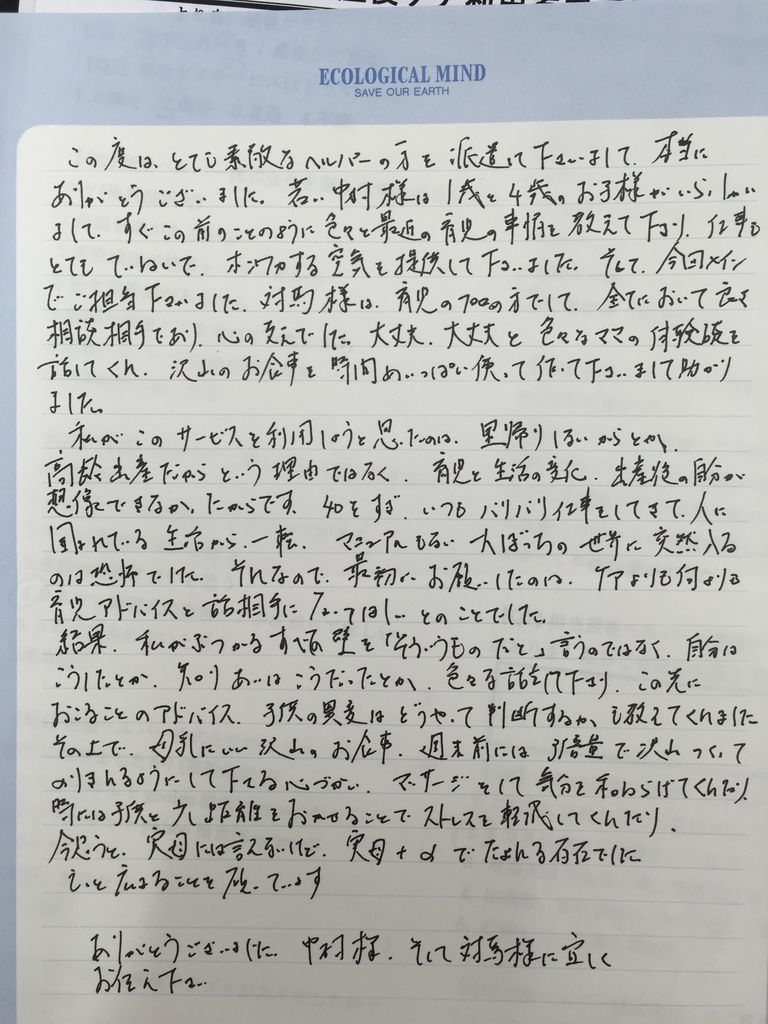 ECOLOGICAL MIND
SAVE OUR EARTH
この度は、とても素敵なヘルパーの方を派遣して下さいまして、本当に
ありがとうございました。若い中村様は1歳と4歳のお子様がいらっしゃい
まして、すぐこの前のことのように色々と最近の育児の事情を教えて下さり、仕事も
とてもていねいで、ホンワカする空気を提供して下さいました。そして、今回メイン
でご担当下さいました対馬様は、育児のプロの方でして、全てにおいて良き
相談相手であり、心の支えでした。大丈夫、大丈夫と色々なママの体験談を
話してくれ、沢山のお食事を時間めいっぱい使って作って下さいまして助かり
ました。
私がこのサービスを利用しようと思ったのは、里帰りしないからとか、
高齢出産だからという理由ではなく、育児と生活の変化、出産後の自分が
想像できなかったからです。40をすぎ、いつもバリバリ仕事をしてきて、人に
囲まれている生活から、一転、マニュアルもない一人ぼっちの世界に突然入る
のは恐怖でした。それなので、最初にお願いしたのは、ケアよりも何よりも
育児アドバイスと話相手になってほしいとのことでした。
結果、私がぶつかるすべての壁を「そういうものだと」言うのではなく、自分は
こうしたとか、知りあいはこうだったとか、色々な話をして下さり、この先に
おこることのアドバイス、子供の異変はどうやって判断するかも教えてくれました
その上で、母乳にいい沢山のお食事、週末前には3倍量で沢山つくって
のりきれるようにして下さる心づかい、マッサージをして気分を和わらげてくれたり、
時には子供と少し距離をおかせることでストレスを軽減してくれたり、
今思うと、実母には言えないけど、実母+αでたよれる存在でした
もっと広まることを願っています
ありがとうございました。中村様、そして対馬様に宜しく
お伝え下さい